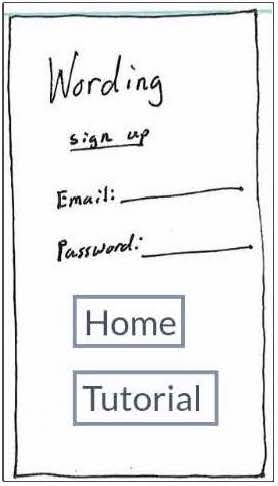 Wording
sign up
Email:
Password:
Home
Tutorial